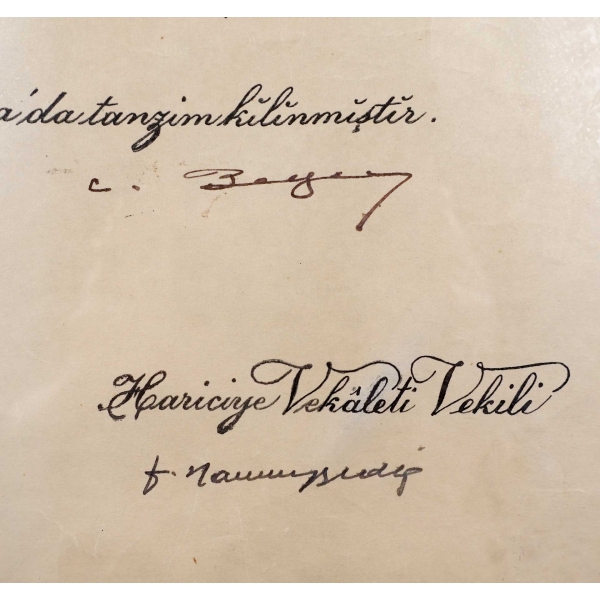 a'da tanzim kılınmıştır.
C.
Hariciye Vekâleti Vekili
F.